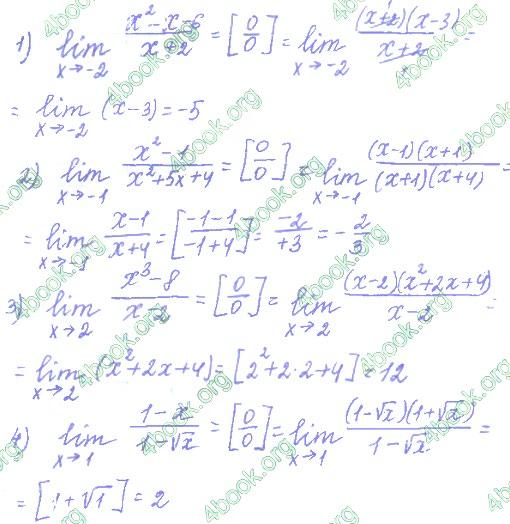 1) lim x→-2 (x² - x - 6)/(x + 2) = [0/0] = lim x→-2 (x+2)(x-3)/(x+2) =
= lim x→-2 (x-3) = -5
2) lim x→-1 (x² - 1)/(x² + 5x + 4) = [0/0] = lim x→-1 (x-1)(x+1)/(x+1)(x+4) =
= lim x→-1 (x-1)/(x+4) = [(-1-1)/(-1+4)] = -2/+3 = -2/3
3) lim x→2 (x³ - 8)/(x - 2) = [0/0] = lim x→2 (x-2)(x²+2x+4)/(x-2) =
= lim x→2 (x²+2x+4) = [2²+2·2+4] = 12
4) lim x→1 (1-x)/(1-√x) = [0/0] = lim x→1 (1-√x)(1+√x)/(1-√x) =
= [1+√1] = 2
4book.org